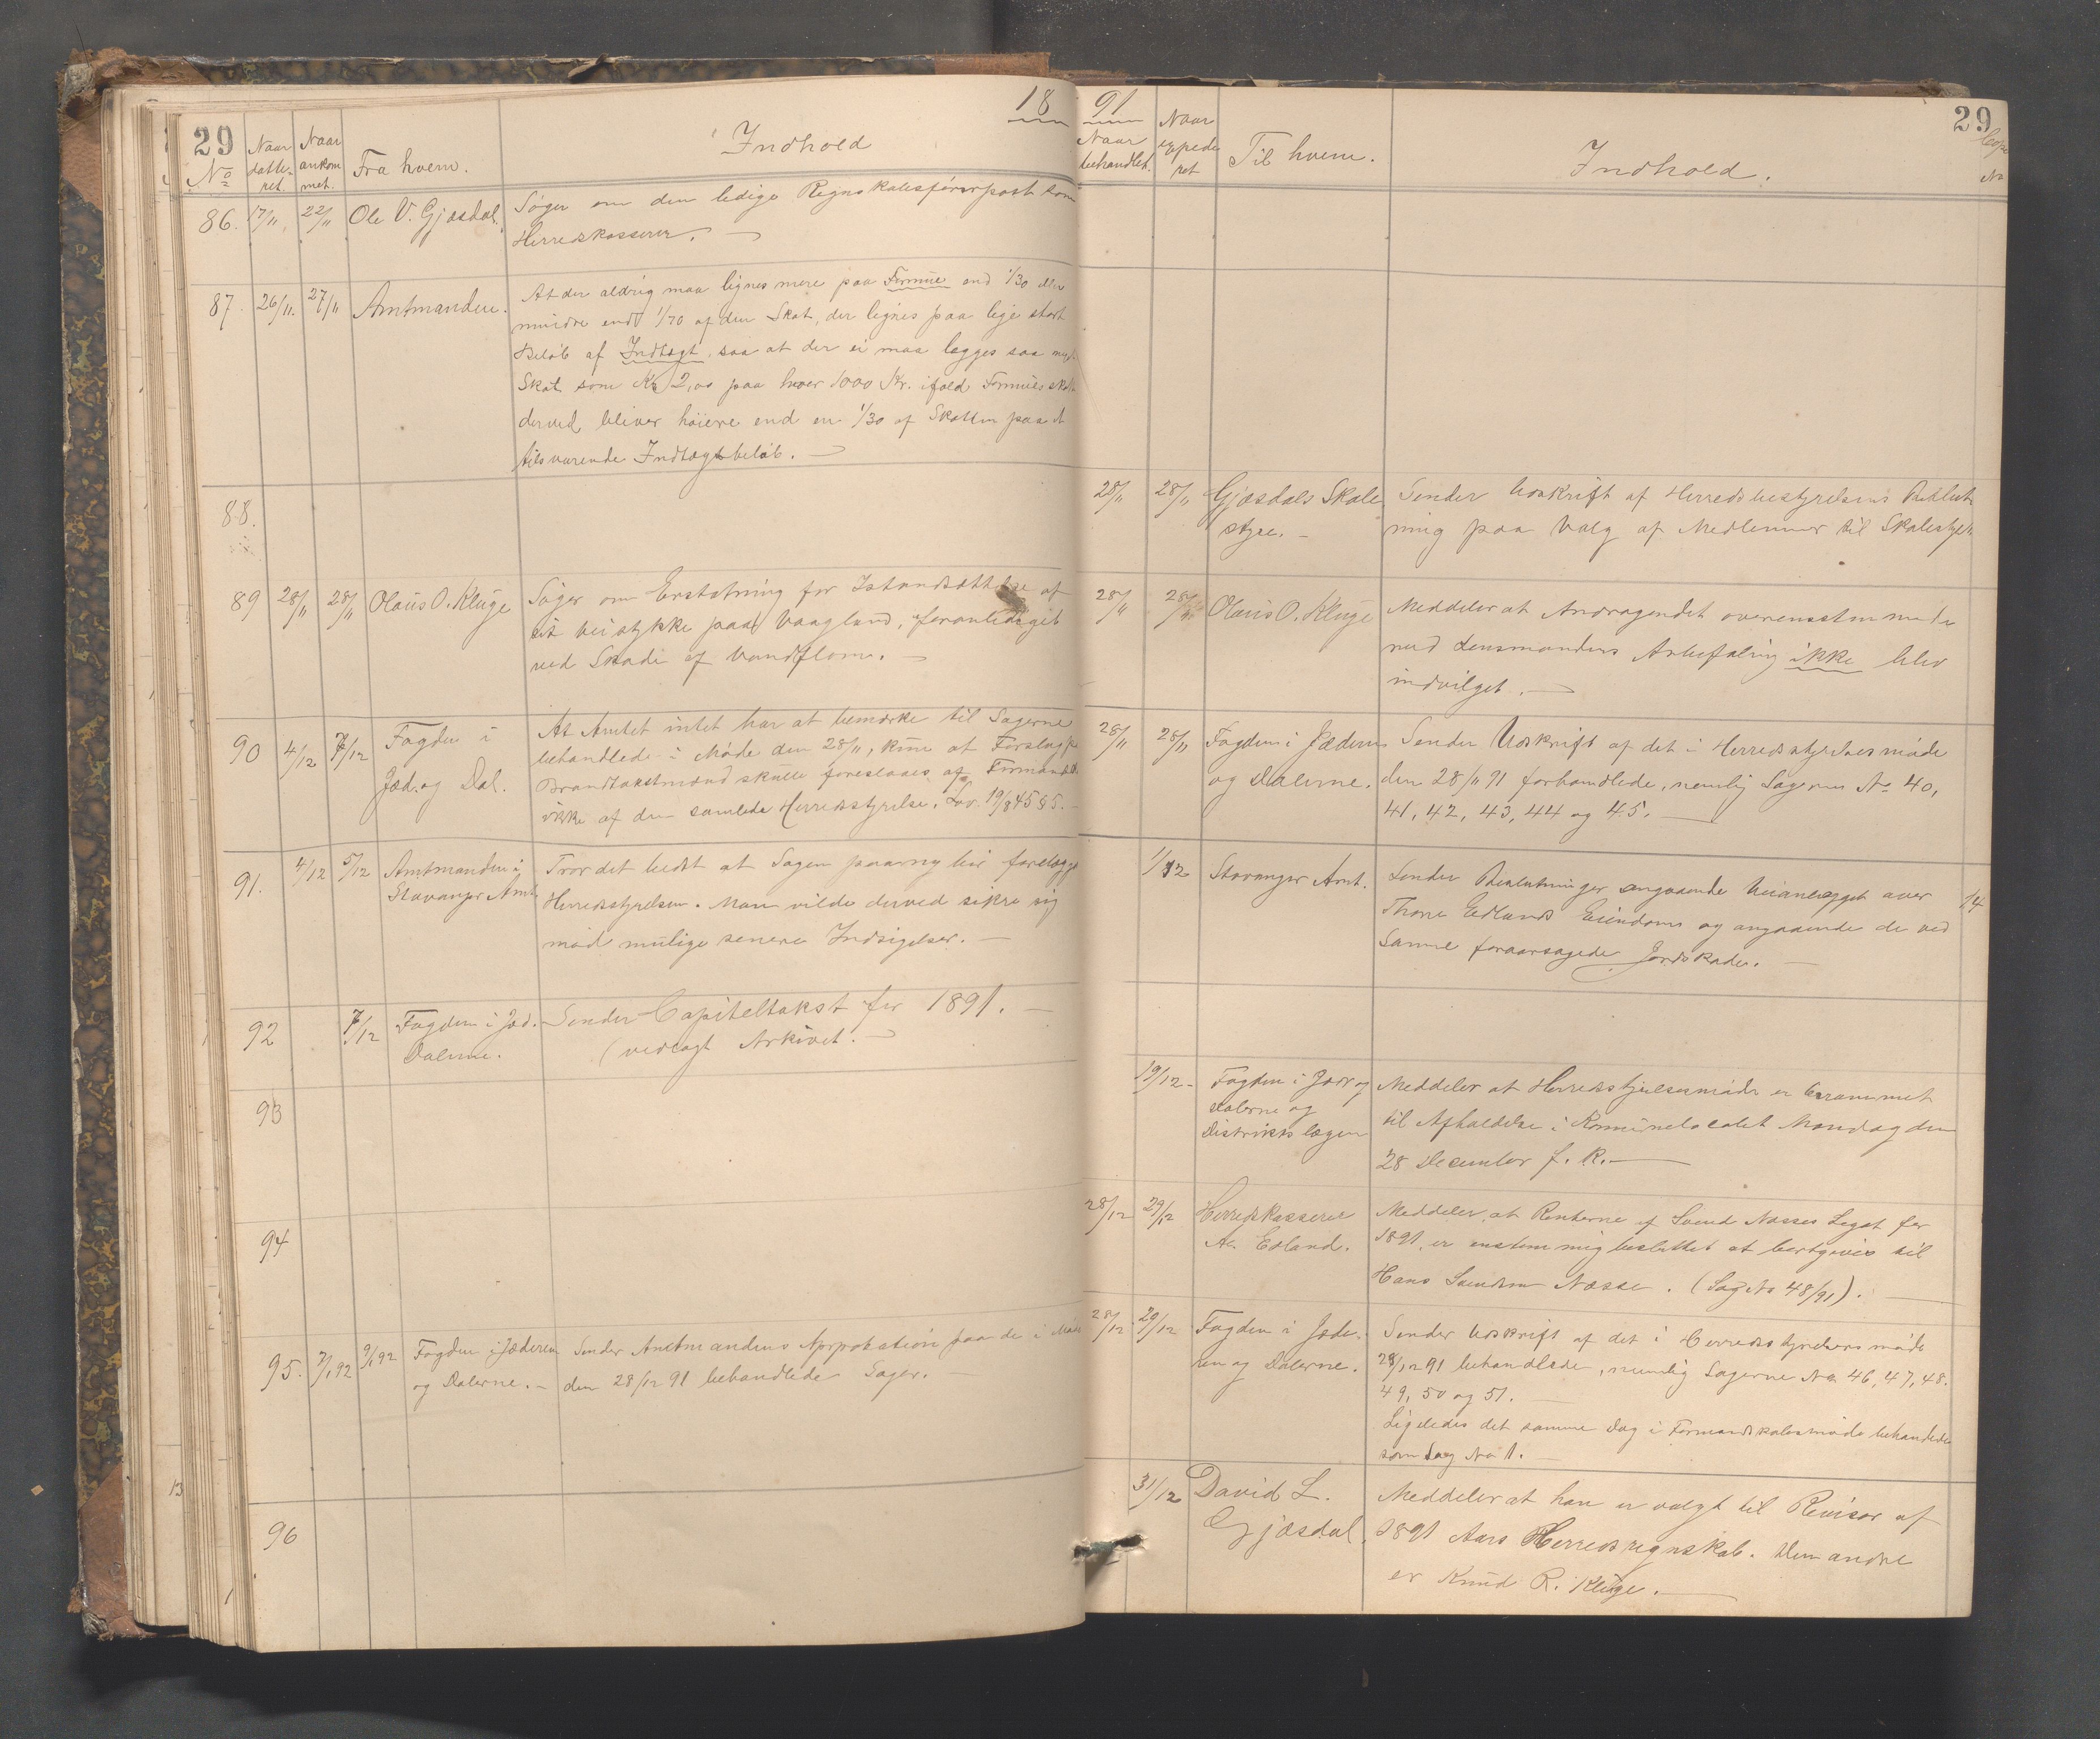 29
18
No
Naar datteret.
Naar ankommet.
Fra hvem.
Indhold
86. 17/11 22/11 Ole V. Gjæsdal. Søger om den ledige Regnskabsførerpost som
Herredskasserer.
87. 26/11. 27/11 Amtmanden. At der aldrig maa lignes mere paa Formue end 1/30 eller
mindre end 1/70 af den Skat, der lignes paa lige stort
Beløb af Indtægt, saa at der ei maa lægges saa
Skat som Kr 2,00 paa hver 1000 Kr. ifald
derved bliver høiere end en 1/30 af Skatten paa et
tilsvarende Indtægtsbeløb.
88.
89 28/11 28/11 Olaus O. Kluge Søger om Erstatning for Istandsættelse af
sit veistykke paa Vaagland, foranlediget
ved Skade af Vandflom.
90 4/12 7/12 Fogden i At Amtet intet har at bemærke til Sagerne
Jæd. og Dal. behandlede i Møde den 28/11, kun at Forslag
Brandtakstmænd skulle foreslaaes af
ikke af den samlede Herredsstyrelse. Lov. 19/8 45 § 5.
91. 4/12 5/12 Amtmanden i Tror det bedst at Sagen paany bør
Stavanger Amt. Herredsstyrelsen. Man vilde derved sikre sig
mod mulige senere Indsigelser.
92 7/12 Fogden i Jæd. Sender Capiteltakst for 1891.
Dalerne. (vedlagt Arkivet.
93
94
95. 7/1 92 9/1 92 Fogden i Jæderen Sender Amtmandens Approbation paa de i Møde
og Dalerne. den 28/12 91 behandlede Sager.
96
91
29
Naar behandlet.
Naar expederet
Til hvem.
Indhold.
No
28/11 28/11 Gjæsdals Skolestyre. Sender Udskrift af Herredsbestyrelsens
ning paa Valg af Medlemmer til
28/11 28/11 Olaus O. Kluge Meddeler at Andragendet overensstemmende
med Lensmandens Anbefaling ikke blev
indvilget.
28/11 28/11 Fogden i Jæderen Sender Udskrift af det i Herredsstyrelsesmøde
og Dalerne. den 28/11 91 forhandlede, nemlig Sagerne No 40,
41, 42, 43, 44 og 45.
1/12 Stavanger Amt. Sender Beslutninger angaaende Veianlægget over 14
Thore Edlands Eiendom og angaaende de ved
Samme foraarsagede Jordskader.
19/12 Fogden i Jæd. og Meddeler at Herredsstyrelsesmøde er berammet
Dalerne og til Afholdelse i Kommunelocalet Mandag den
Distriktslægen 28 December f. K.
28/12 29/12 Herredskasserer Meddeler, at Renterne af Svend Næsses Legat for
A. Edland. 1891, er enstemmig besluttet at bortgives til
Hans Svendsen Næsse. (Sag No 48/91).
28/12 29/12 Fogden i Jæde- Sender Udskrift af det i Herredsstyrelsens møde
ren og Dalerne. 28/12 91 behandlede, nemlig Sagerne No 46, 47, 48.
49, 50 og 51.
Ligeledes det samme Dag i Formandskabsmøde behandlede
som Sag No 1.
31/12 David L. Meddeler at han er valgt til Revisor af
Gjæsdal. 1891 Aars Herredsregnskab. Den andre
er Knud R. Kluge.